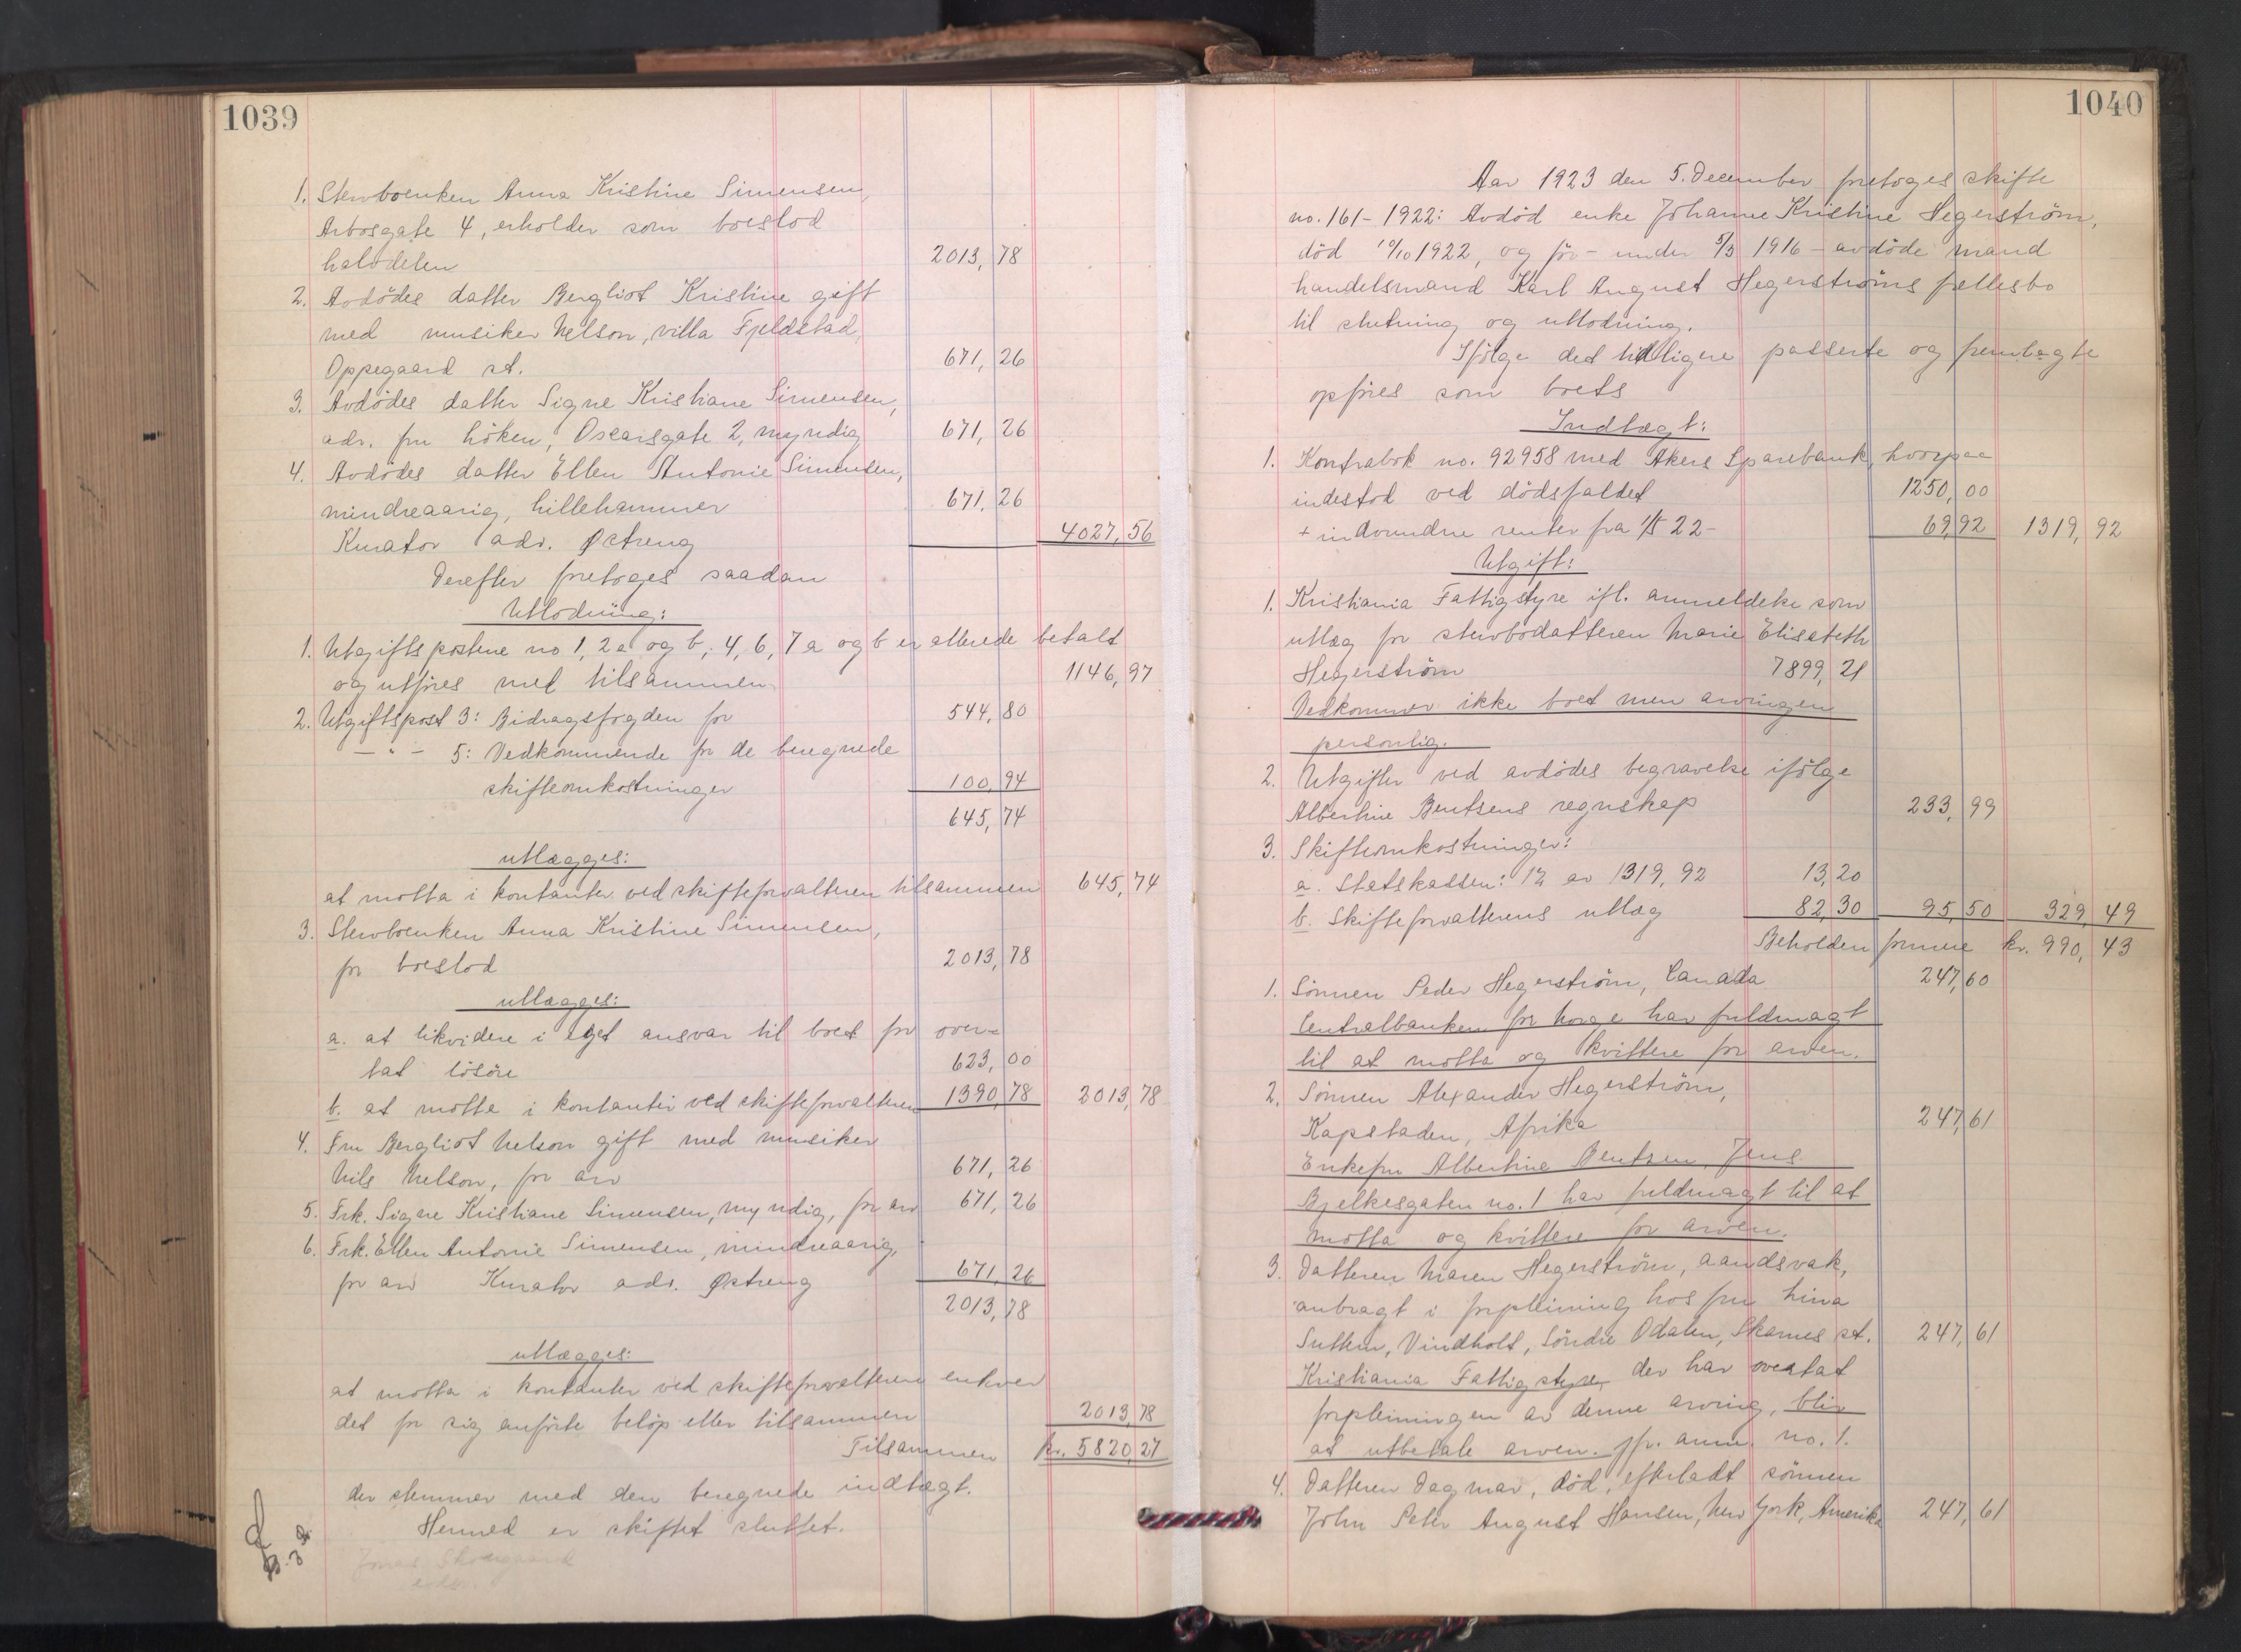 1039
1. Stervboenken Anna Kristine Simensen,
Arbosgate 4, erholder som boeslod
halvdelen 2013,78
2. Avdödes datter Bergliot Kristine gift
med musiker Nelson, villa Fjeldstad,
Oppegaard st. 671,26
3. Avdödes datter Signe Kristiane Simensen,
adr. fru Höken, Oscarsgate 2, myndig 671,26
4. Avdödes datter Ellen Antonie Simensen,
mindreaarig, Lillehammer 671,26
Kurator adv. Østreng 4027,56
Derefter foretoges saadan
Utlodning:
1. Utgiftspostene no 1, 2a og b, 4, 6, 7a og b er allerede betalt
og utföres med tilsammen 1146,97
2. Utgiftspost 3: Bidragsfogden for 544,80
— " — 5: Vedkommende for de beregnede
skifteomkostninger 100,94
645,74
utlægges:
at motta i kontanter ved skifteforvalteren tilsammen 645,74
3. Stervboenken Anna Kristine Simensen,
for boeslod 2013,78
utlægges:
a. at likvidere i eget ansvar til boet for over-
tat lösöre 623,00
b. at motta i kontanter ved skifteforvalteren 1390,78 2013,78
4. Fru Bergliot Nelson gift med musiker
Nils Nelson, for arv 671,26
5. Frk. Signe Kristiane Simensen, myndig, for arv 671,26
6. Frk. Ellen Antonie Simensen, mindreaarig,
for arv Kurator adv. Østreng 671,26
2013,78
utlægges:
at motta i kontanter ved skifteforvalteren enhver
det for sig anförte belöp eller tilsammen 2013,78
Tilsammen kr. 5820,27
der stemmer med den beregnede indtægt.
Hermed er skiftet sluttet.
1040
Aar 1923 den 5. December foretoges skifte
no. 161-1922: Avdöd enke Johanne Kristine Hegerström,
död 10/10 1922, og för - under 5/3 1916 - avdöde mand
handelsmand Karl August Hegerströms fællesbo
til slutning og utlodning.
Ifölge det tidligere passerte og fremlagte
opföres som boets
Indtægt:
1. Kontrabok no. 92958 med Akers Sparebank, hvorpaa
indestod ved dödsfaldet 1250,00
+ indvundne renter fra 1/5 22- 69,92 1319,92
Utgift:
1. Kristiania Fattigstyre ifl. anmeldelse som
utlæg for stervbodatteren Marie Elisabeth
Hegerström 7899,21
Vedkommer ikke boet men arvingen
personlig.
2. Utgifter ved avdödes begravelse ifölge
Albertine Bentsens regnskap 233,99
3. Skifteomkostninger:
a. Statskassen: 1% av 1319,92 13,20
b. Skifteforvalterens utlæg 82,30 95,50 329,49
Beholden formue kr. 990,43
1. Sönnen Peder Hegerström, Canada 247,60
Centralbanken for Norge har fuldmagt
til at motta og kvittere for arven.
2. Sönnen Alexander Hegerström,
Kapstaden, Afrika 247,61
Enkefru Albertine Bentzen, Jens
Bjelkesgaten no. 1 har fuldmagt til at
motta og kvittere for arven.
3. Datteren Maren Hegerström, aandsvak,
anbragt i forpleining hos fru Lina
Suttern, Vindholt, Söndre Odalen, Skarnes st. 247,61
Kristiania Fattigstyre, der har overtat
forpleiningen av denne arving, blir
at utbetale arven. jfr. anm. no. 1.
4. Datteren Dagmar, död, efterladt sönnen
John Peter August Hansen, New York, Amerika 247,61